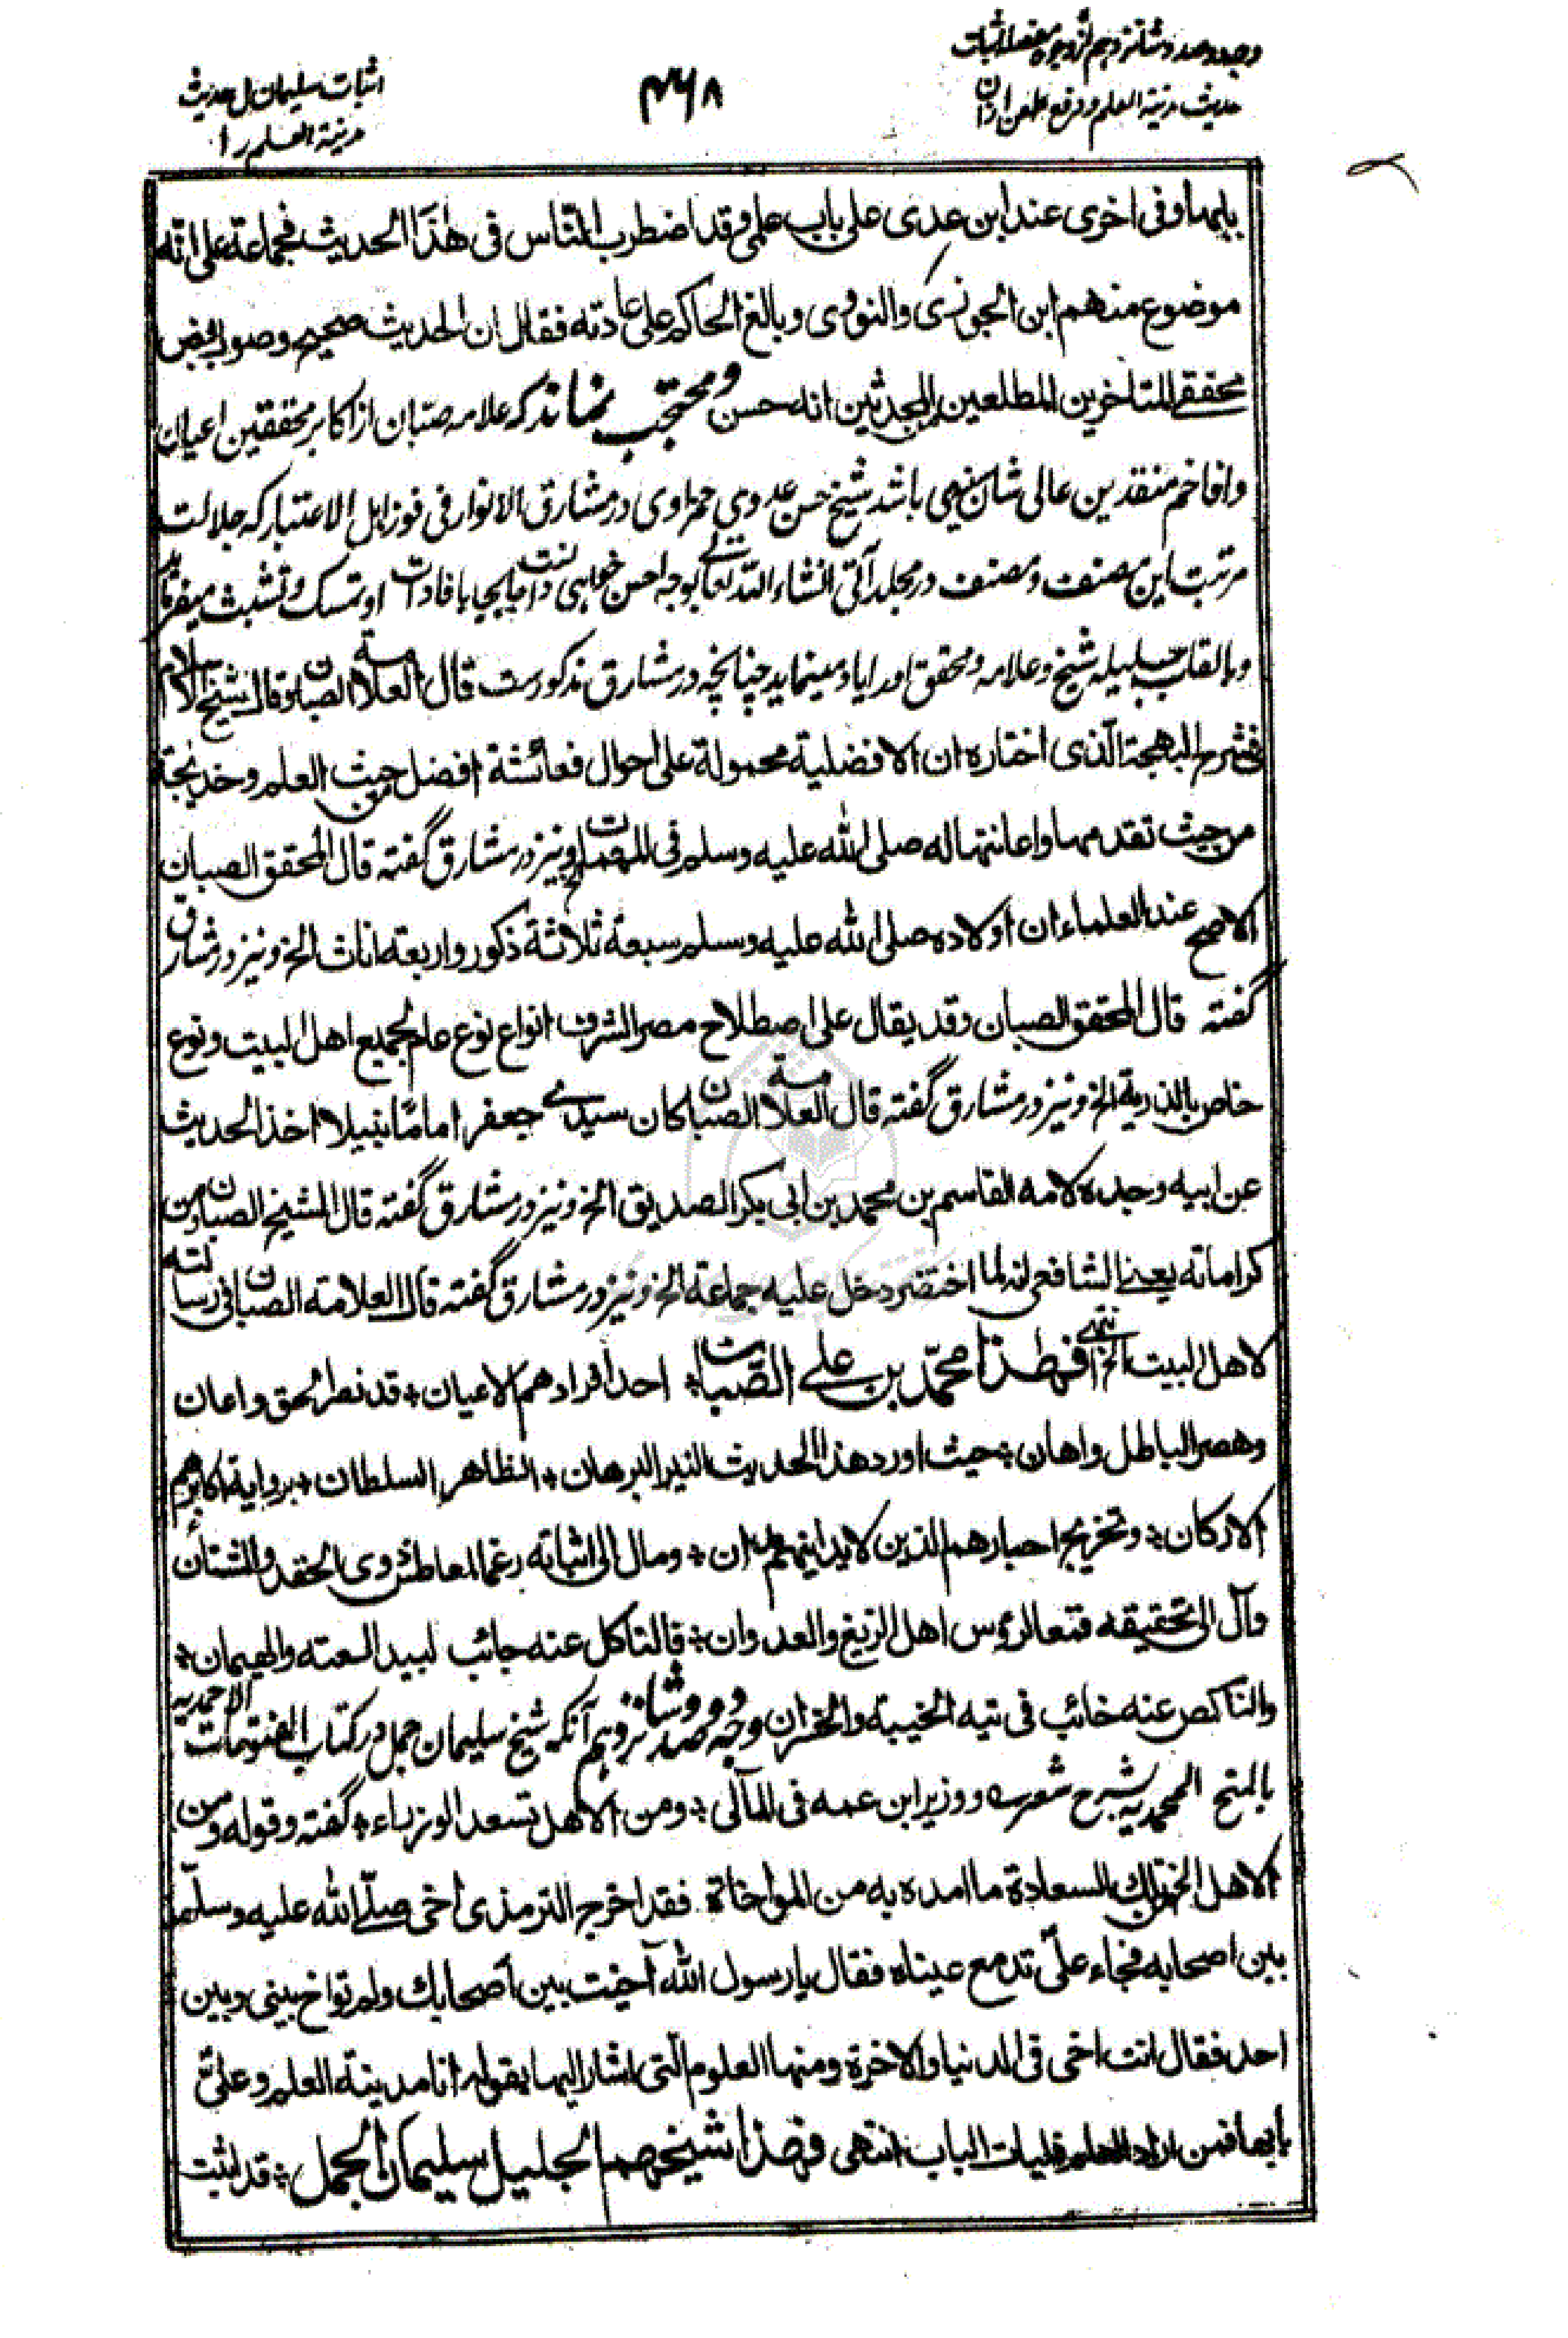 وجه دو صد و شانزدهم از وجوه مفصله اثبات
حدیث مدینة العلم و دفع طعن از ان
۴۶۸
اثبات سلیمان جمل حدیث
مدینة العلم را
بابها وفی اخری عند ابن عدی علی باب علمی وقد اضطرب الناس فی هذا الحدیث فجماعة علی انه
موضوع منهم ابن الجوزی والنووی وبالغ الحاکم علی عادته فقال ان الحدیث صحیح وصوب بعض
محققی المتاخرین المطلعین من المحدثین انه حسن و محتجب نماند که علامه صبان از اکابر محققین اعیان
وافاخم منقدین عالی شان ست می باشد شیخ حسن عدوی حمزاوی در مشارق الانوار فی فوز اهل الاعتبار که جلالت
مرتبت این مصنف و مصنف در مجلد آتی انشاء الله تعالی بوجه احسن خواهی دانست جابجا بافادات او تمسک و تشبث میفرماید
وبالقاب جلیله شیخ وعلامه ومحقق اورا یاد مینماید چنانچه در مشارق مذکورست قال العلامة الصبان وقال شیخ الاسلام
فی شرح البهجة الذی اختاره ان الافضلیة محمولة علی احوال فعائشة افضل من حیث العلم وخدیجة
من حیث تقدمها واعانتها له صلی الله علیه وسلم فی المهمات الخ ونیز در مشارق گفته قال المحقق الصبان
الاصح عند العلماء ان اولاده صلی الله علیه وسلم سبعة ثلاثة ذکور واربعة اناث الخ ونیز در مشارق
گفته قال المحقق الصبان وقد یقال علی اصطلاح مصر الشرف انواع نوع عام لجمیع اهل البیت ونوع
خاص بالذریة الخ ونیز در مشارق گفته قال العلامة الصبان کان سیدی جعفر اماما نبیلا اخذ الحدیث
عن ابیه وجده لامه القاسم بن محمد بن ابی بکر الصدیق الخ ونیز در مشارق گفته قال الشیخ الصبان ومن
کراماته یعنی الشافعی انه لما احتضر دخل علیه جماعة الخ ونیز در مشارق گفته قال العلامة الصبان فی رسالته
لاهل البیت الخ انتهی فهذا محمد بن علی الصبان احد افرادهم الاعیان قد نصر الحق واعان
وهصر الباطل واهان حیث اورد هذا الحدیث النیر البرهان الظاهر السلطان بروایة اکابرهم
الارکان وتخریج احبارهم الذین لا یدانیهم ان ومال الی اثباته رغما لمعاطس ذوی الحقد والشنان
وآل الی تحقیقه قمعا لرؤس اهل الزیغ والعدوان فالناکل عنه جائب لبید العته والهیمان
والناکص عنه خائب فی تیه الخیبة والخسران وجه دو صد و شانزدهم آنکه شیخ سلیمان جمل در کتاب الفتوحات الاحمدیه
بالمنح المحمدیه بشرح شعر ووزیر ابن عمه فی المعالی ومن الاهل تسعد الوزراء گفته وقوله ومن
الاهل الخ من تلک السعادة ما امده به من المواخاة فقد اخرج الترمذی اخی صلی الله علیه وسلم
بین اصحابه فجاء علی تدمع عیناه فقال یا رسول الله آخیت بین اصحابک ولم تواخ بینی وبین
احد فقال انت اخی فی الدنیا والاخرة ومنها العلوم التی اشار الیها بقوله انا مدینة العلم وعلی
بابها فمن اراد العلم فلیات الباب انتهی فهذا شیخهم الجلیل سلیمان الجمل قد اثبت